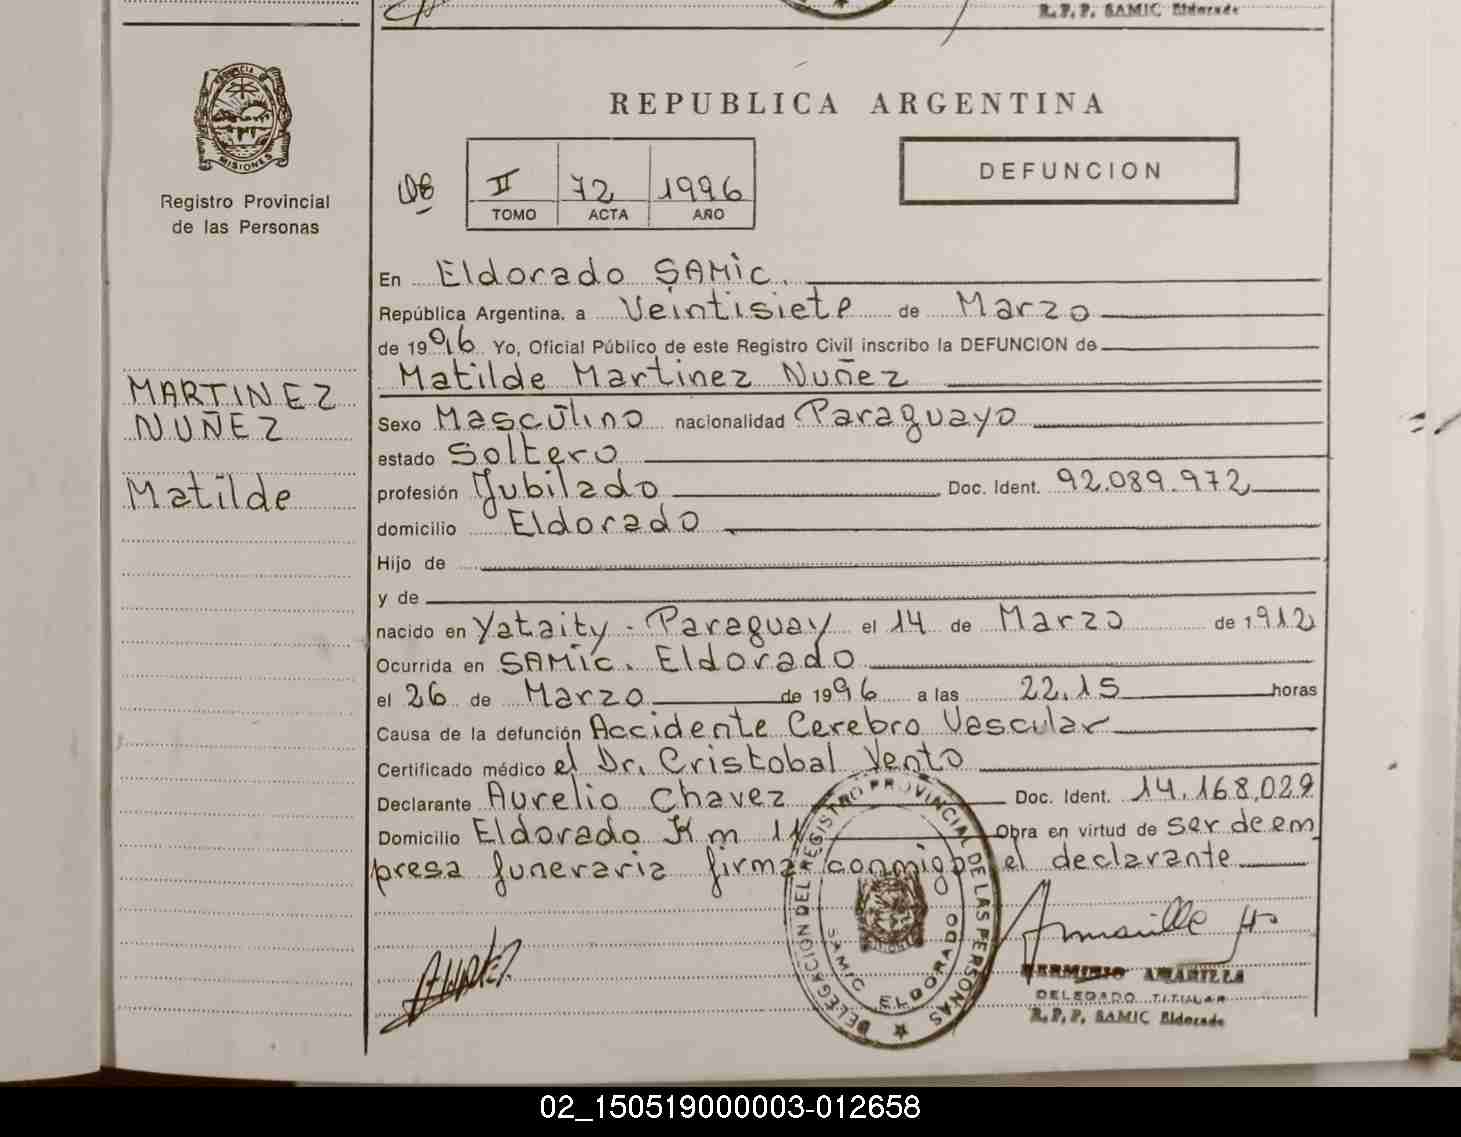 R.P.P. SAMIC Eldorado
PROVINCIA
MISIONES
Registro Provincial
de las Personas
REPUBLICA ARGENTINA
DEFUNCION
II 72 1996
TOMO ACTA AÑO
En Eldorado SAMic.
República Argentina, a Veintisiete de Marzo
de 1996 Yo, Oficial Público de este Registro Civil inscribo la DEFUNCION de
Matilde Martinez Nuñez
MARTINEZ
NUÑEZ
Matilde
Sexo Masculino nacionalidad Paraguayo
estado Soltero
profesión Jubilado Doc. Ident. 92.089.972
domicilio Eldorado
Hijo de
y de
nacido en Yataity - Paraguay el 14 de Marzo de 1912
Ocurrida en SAMic. Eldorado
el 26 de Marzo de 1996 a las 22.15 horas
Causa de la defunción Accidente Cerebro Vascular
Certificado médico el Dr. Cristobal Vento
Declarante Aurelio Chavez Doc. Ident. 14.168.029
Domicilio Eldorado Km 11 Obra en virtud de ser de em
presa funeraria firma conmigo el declarante
DELEGACION DEL REGISTRO PROVINCIAL DE LAS PERSONAS
SAMIC ELDORADO
HERMINIO AMARILLA
DELEGADO TITULAR
R.P.P. SAMIC Eldorado
02_150519000003-012658